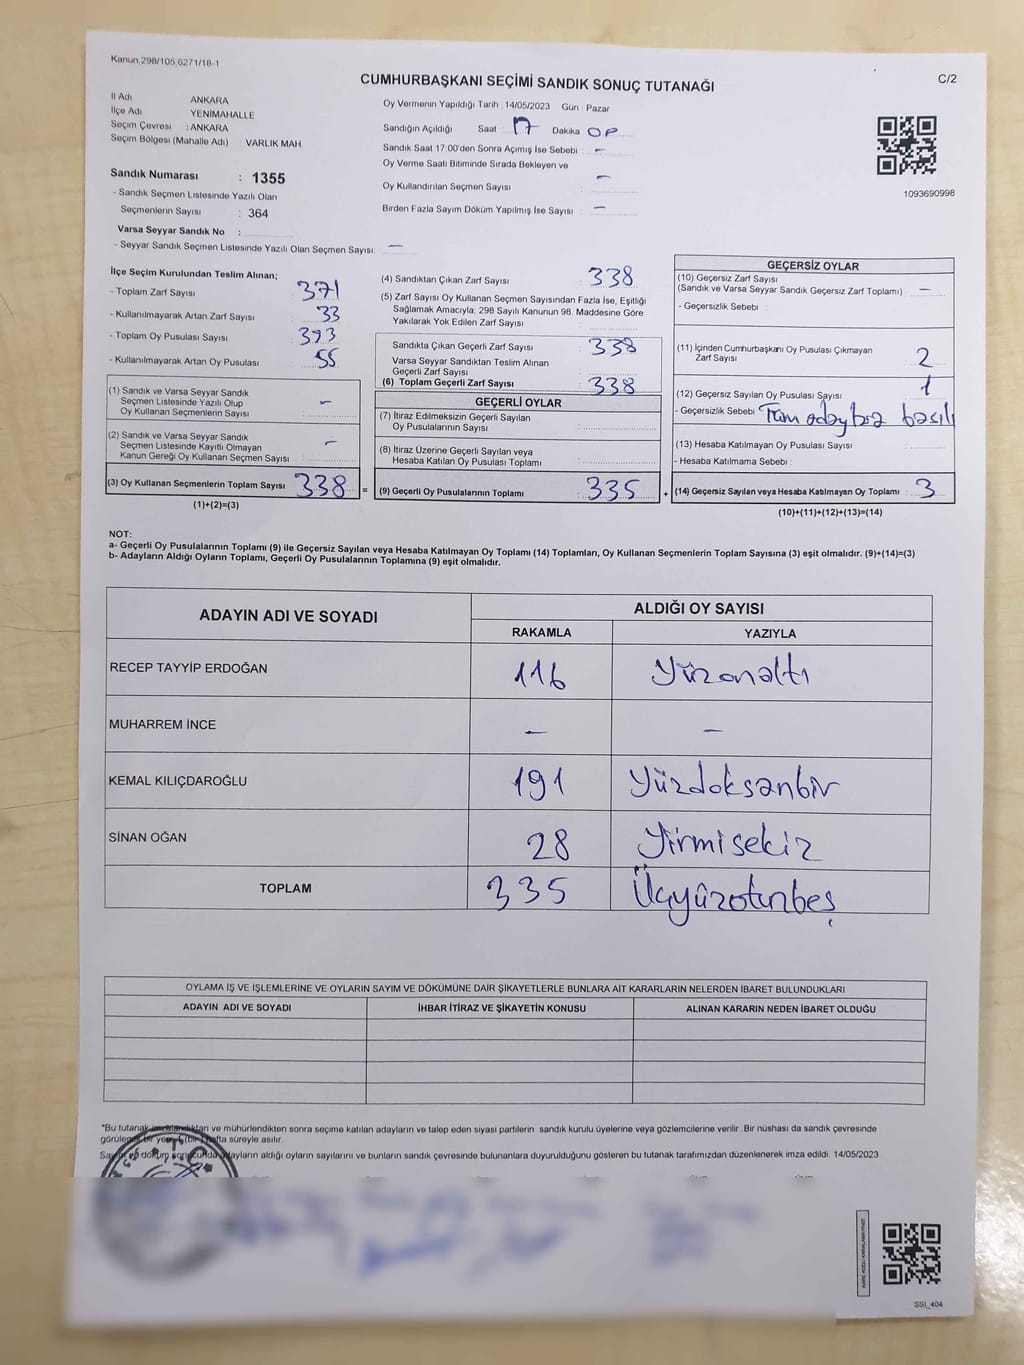 Kanun.298/105,6271/18-1
CUMHURBAŞKANI SEÇİMİ SANDIK SONUÇ TUTANAĞI
C/2
İl Adı ANKARA
İlçe Adı YENİMAHALLE
Seçim Çevresi : ANKARA
Seçim Bölgesi (Mahalle Adı) VARLIK MAH.
Sandık Numarası : 1355
- Sandık Seçmen Listesinde Yazılı Olan
Seçmenlerin Sayısı : 364
Varsa Seyyar Sandık No :
- Seyyar Sandık Seçmen Listesinde Yazılı Olan Seçmen Sayısı: —
Oy Vermenin Yapıldığı Tarih : 14/05/2023 Gün : Pazar
Sandığın Açıldığı Saat 17 Dakika
Sandık Saat 17:00'den Sonra Açımış İse Sebebi : —
Oy Verme Saati Bitiminde Sırada Bekleyen ve
Oy Kullandırılan Seçmen Sayısı : —
Birden Fazla Sayım Döküm Yapılmış İse Sayısı : —
1093690998
İlçe Seçim Kurulundan Teslim Alınan;
- Toplam Zarf Sayısı 371
- Kullanılmayarak Artan Zarf Sayısı 33
- Toplam Oy Pusulası Sayısı 393
- Kullanılmayarak Artan Oy Pusulası 55
(1) Sandık ve Varsa Seyyar Sandık
Seçmen Listesinde Yazılı Olup
Oy Kullanan Seçmenlerin Sayısı : —
(2) Sandık ve Varsa Seyyar Sandık
Seçmen Listesinde Kayıtlı Olmayan
Kanun Gereği Oy Kullanan Seçmen Sayısı : —
(3) Oy Kullanan Seçmenlerin Toplam Sayısı 338
(1)+(2)=(3)
(4) Sandıktan Çıkan Zarf Sayısı : 338
(5) Zarf Sayısı Oy Kullanan Seçmen Sayısından Fazla İse, Eşitliği
Sağlamak Amacıyla, 298 Sayılı Kanunun 98. Maddesine Göre
Yakılarak Yok Edilen Zarf Sayısı :
Sandıkta Çıkan Geçerli Zarf Sayısı : 338
Varsa Seyyar Sandıktan Teslim Alınan
Geçerli Zarf Sayısı :
(6) Toplam Geçerli Zarf Sayısı : 338
GEÇERLİ OYLAR
(7) İtiraz Edilmeksizin Geçerli Sayılan
Oy Pusulalarının Sayısı :
(8) İtiraz Üzerine Geçerli Sayılan veya
Hesaba Katılan Oy Pusulası Toplamı :
= (9) Geçerli Oy Pusulalarının Toplamı : 335
GEÇERSİZ OYLAR
(10) Geçersiz Zarf Sayısı
(Sandık ve Varsa Seyyar Sandık Geçersiz Zarf Toplamı) : —
- Geçersizlik Sebebi :
(11) İçinden Cumhurbaşkanı Oy Pusulası Çıkmayan
Zarf Sayısı : 2
(12) Geçersiz Sayılan Oy Pusulası Sayısı : 1
- Geçersizlik Sebebi : Tüm basılı
(13) Hesaba Katılmayan Oy Pusulası Sayısı :
- Hesaba Katılmama Sebebi :
+ (14) Geçersiz Sayılan veya Hesaba Katılmayan Oy Toplamı : 3
(10)+(11)+(12)+(13)=(14)
NOT:
a- Geçerli Oy Pusulalarının Toplamı (9) ile Geçersiz Sayılan veya Hesaba Katılmayan Oy Toplamı (14) Toplamları, Oy Kullanan Seçmenlerin Toplam Sayısına (3) eşit olmalıdır. (9)+(14)=(3)
b- Adayların Aldığı Oyların Toplamı, Geçerli Oy Pusulalarının Toplamına (9) eşit olmalıdır.
ADAYIN ADI VE SOYADI ALDIĞI OY SAYISI
RAKAMLA YAZIYLA
RECEP TAYYİP ERDOĞAN 116 Yüzonaltı
MUHARREM İNCE — —
KEMAL KILIÇDAROĞLU 191 Yüzdoksanbir
SİNAN OĞAN 28 Yirmisekiz
TOPLAM 335 Üçyüzotuzbeş
OYLAMA İŞ VE İŞLEMLERİNE VE OYLARIN SAYIM VE DÖKÜMÜNE DAİR ŞİKAYETLERLE BUNLARA AİT KARARLARIN NELERDEN İBARET BULUNDUKLARI
ADAYIN ADI VE SOYADI İHBAR İTİRAZ VE ŞİKAYETİN KONUSU ALINAN KARARIN NEDEN İBARET OLDUĞU
*Bu tutanak imzalandıktan ve mühürlendikten sonra seçime katılan adayların ve talep eden siyasi partilerin sandık kurulu üyelerine veya gözlemcilerine verilir. Bir nüshası da sandık çevresinde
görülecek bir yere (bir) hafta süreyle asılır.
Sayım ve döküm sonucunda adayların aldığı oyların sayılarını ve bunların sandık çevresinde bulunanlara duyurulduğunu gösteren bu tutanak tarafımızdan düzenlenerek imza edildi. 14/05/2023
SSI_404